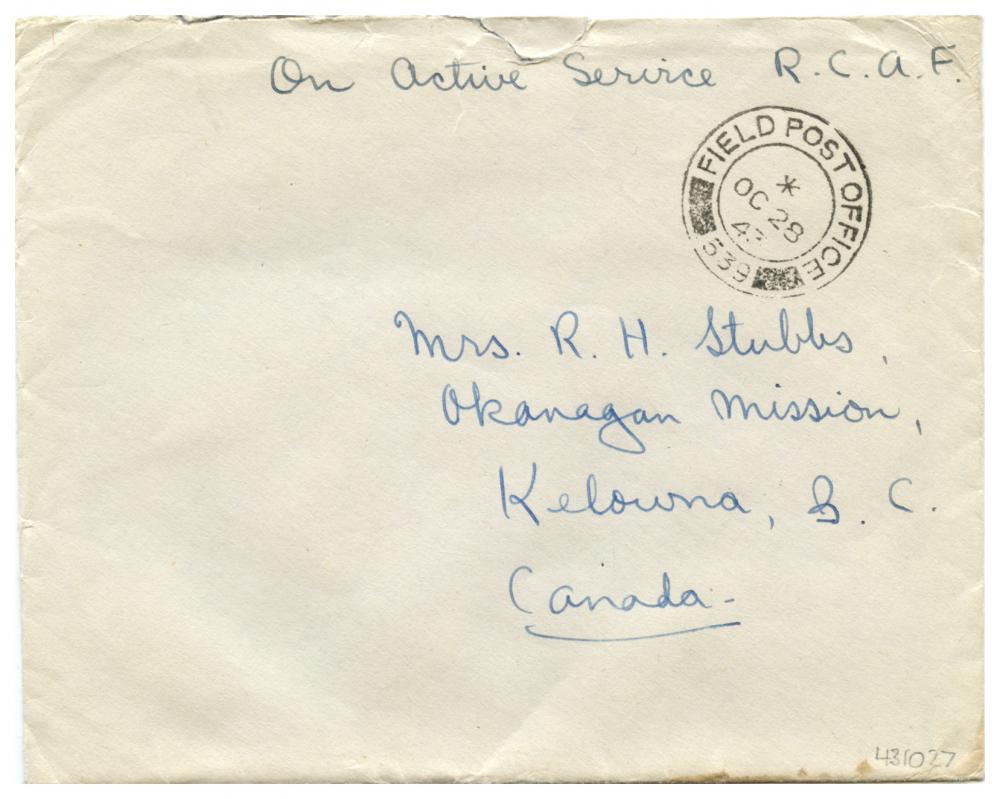 On Active Service R.C.A.F.
FIELD POST OFFICE
*
OC 28
43
539
Mrs. R. H. Stubbs,
Okanagan Mission,
Kelowna, B. C.
Canada -
431027